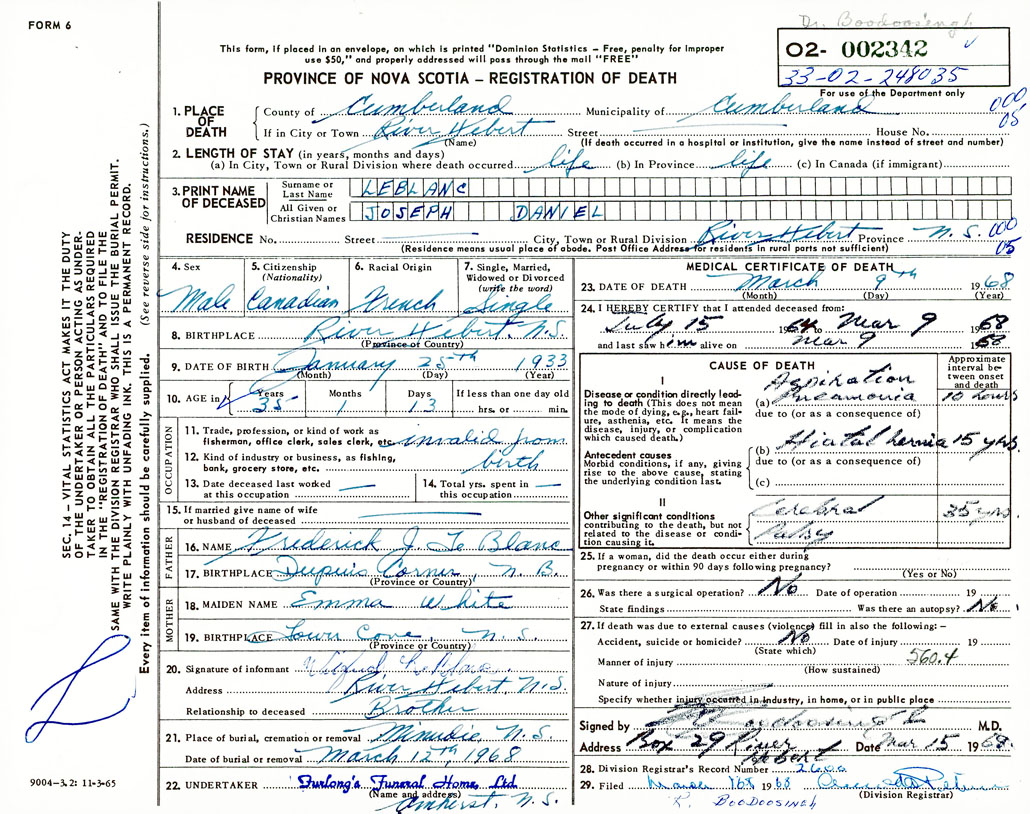 FORM 6
Dr. Boodoosingh
This form, if placed in an envelope, on which is printed "Dominion Statistics – Free, penalty for improper
use $50," and properly addressed will pass through the mail "FREE"
O2- 002342
33-02-248035
PROVINCE OF NOVA SCOTIA – REGISTRATION OF DEATH
For use of the Department only
1. PLACE OF DEATH
County of Cumberland Municipality of Cumberland 000
If in City or Town River Hebert Street House No. 05
(Name) (If death occurred in a hospital or institution, give the name instead of street and number)
2. LENGTH OF STAY (in years, months and days)
(a) In City, Town or Rural Division where death occurred life (b) In Province life (c) In Canada (if immigrant)
3. PRINT NAME OF DECEASED
Surname or Last Name LEBLANC
All Given or Christian Names JOSEPH DANIEL
RESIDENCE No. Street City, Town or Rural Division River Hebert Province N. S. 000
(Residence means usual place of abode. Post Office Address for residents in rural parts not sufficient) 05
4. Sex Male
5. Citizenship (Nationality) Canadian
6. Racial Origin French
7. Single, Married, Widowed or Divorced (write the word) Single
8. BIRTHPLACE River Hebert N.S.
(Province or Country)
9. DATE OF BIRTH January 25th 1933
(Month) (Day) (Year)
10. AGE in Years 35 Months 1 Days 13 If less than one day old
hrs. or min.
OCCUPATION
11. Trade, profession, or kind of work as
fisherman, office clerk, sales clerk, etc. invalid from
12. Kind of industry or business, as fishing,
bank, grocery store, etc. birth
13. Date deceased last worked
at this occupation
14. Total yrs. spent in
this occupation
15. If married give name of wife
or husband of deceased
FATHER
16. NAME Frederick J. Le Blanc
17. BIRTHPLACE Dupuis Corner, N. B.
(Province or Country)
MOTHER
18. MAIDEN NAME Emma White
19. BIRTHPLACE Cove, N. S.
(Province or Country)
20. Signature of informant
Address River Hebert, N.S.
Relationship to deceased Brother
21. Place of burial, cremation or removal Minudie, N. S.
Date of burial or removal March 12th, 1968
22. UNDERTAKER Furlong's Funeral Home, Ltd.
(Name and address)
Amherst, N. S.
MEDICAL CERTIFICATE OF DEATH
23. DATE OF DEATH March 9th 1968
(Month) (Day) (Year)
24. I HEREBY CERTIFY that I attended deceased from:
July 15 1964 to Mar 9 1968
and last saw him alive on Mar 9 1968
CAUSE OF DEATH
Approximate interval between onset and death
I
Disease or condition directly leading to death (This does not mean
the mode of dying, e.g., heart failure, asthenia, etc. It means the
disease, injury, or complication
which caused death.)
(a) Aspiration Pneumonia 10 hours
due to (or as a consequence of)
Antecedent causes
Morbid conditions, if any, giving
rise to the above cause, stating
the underlying condition last.
(b) Hiatal hernia 15 yrs.
due to (or as a consequence of)
(c)
II
Other significant conditions
contributing to the death, but not
related to the disease or condition causing it.
Cerebral Palsy 35 yrs.
25. If a woman, did the death occur either during
pregnancy or within 90 days following pregnancy?
(Yes or No)
26. Was there a surgical operation? No Date of operation 19
State findings Was there an autopsy? No
27. If death was due to external causes (violence) fill in also the following:–
Accident, suicide or homicide? No Date of injury 19
(State which)
Manner of injury 560.4
(How sustained)
Nature of injury
Specify whether injury occurred in industry, in home, or in public place
Signed by R Boodoosingh M.D.
Address Box 29 River Hebert Date Mar 15 1968.
28. Division Registrar's Record Number 2600
29. Filed March 1968
(Division Registrar)
R. BOODOOSINGH
SEC. 14 – VITAL STATISTICS ACT MAKES IT THE DUTY
OF THE UNDERTAKER OR PERSON ACTING AS UNDER-
TAKER TO OBTAIN ALL THE PARTICULARS REQUIRED
IN THE "REGISTRATION OF DEATH" AND TO FILE THE
SAME WITH THE DIVISION REGISTRAR WHO SHALL ISSUE THE BURIAL PERMIT.
WRITE PLAINLY WITH UNFADING INK. THIS IS A PERMANENT RECORD.
Every item of information should be carefully supplied. (See reverse side for instructions.)
9004–3.2: 11-3-65